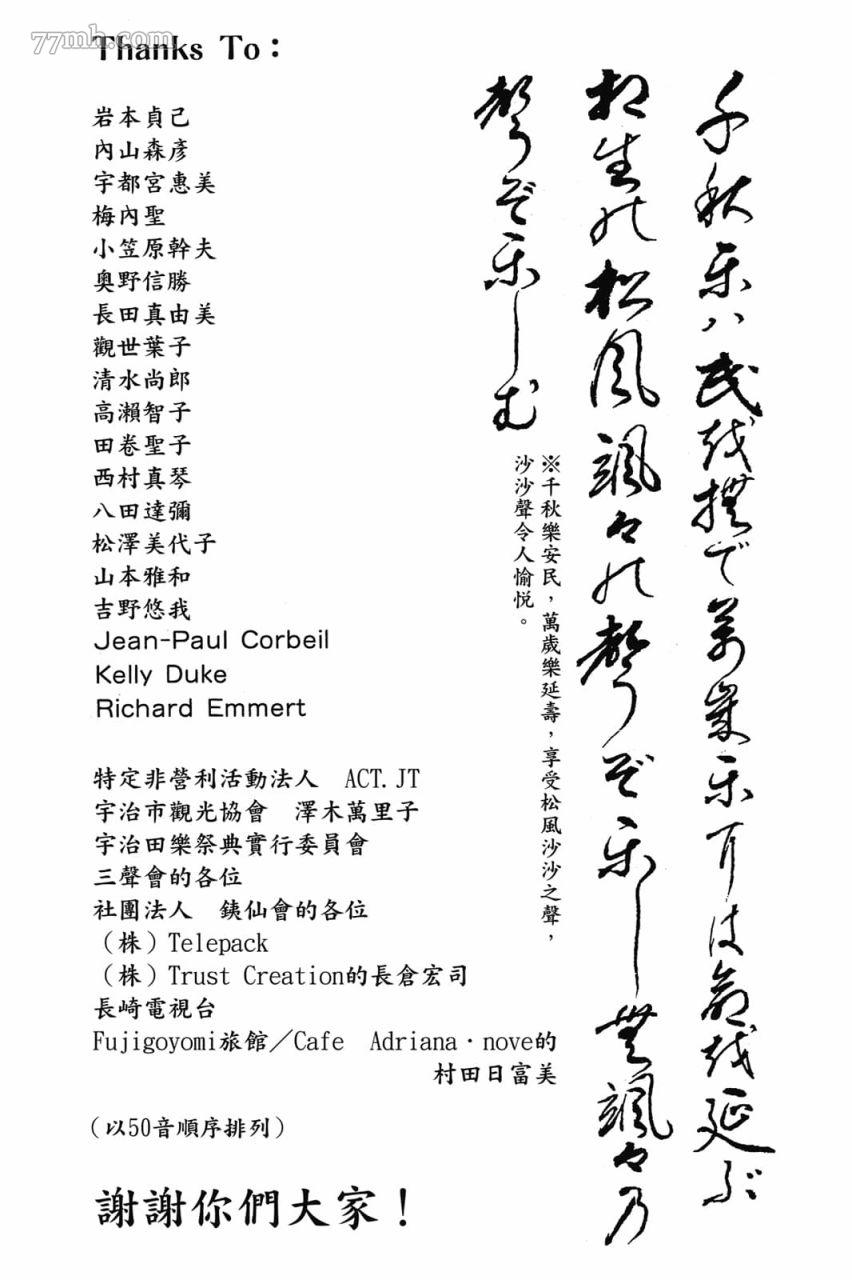 77mh.com
Thanks To：
岩本貞己
內山森彥
宇都宮惠美
梅內聖
小笠原幹夫
奧野信勝
長田真由美
觀世葉子
清水尚郎
高瀨智子
田卷聖子
西村真琴
八田達彌
松澤美代子
山本雅和
吉野悠我
Jean-Paul Corbeil
Kelly Duke
Richard Emmert
特定非營利活動法人　ACT.JT
宇治市觀光協會　澤木萬里子
宇治田樂祭典實行委員會
三聲會的各位
社團法人　銕仙會的各位
（株）Telepack
（株）Trust Creation的長倉宏司
長崎電視台
Fujigoyomi旅館／Cafe　Adriana・nove的
村田日富美
（以50音順序排列）
謝謝你們大家！
千秋乐八民越撫で萬歳乐耳は命越延ぶ
相生能松風颯々能聲ぞ乐し無颯々乃
聲ぞ乐しむ
※千秋樂安民，萬歲樂延壽，享受松風沙沙之聲，
沙沙聲令人愉悅。